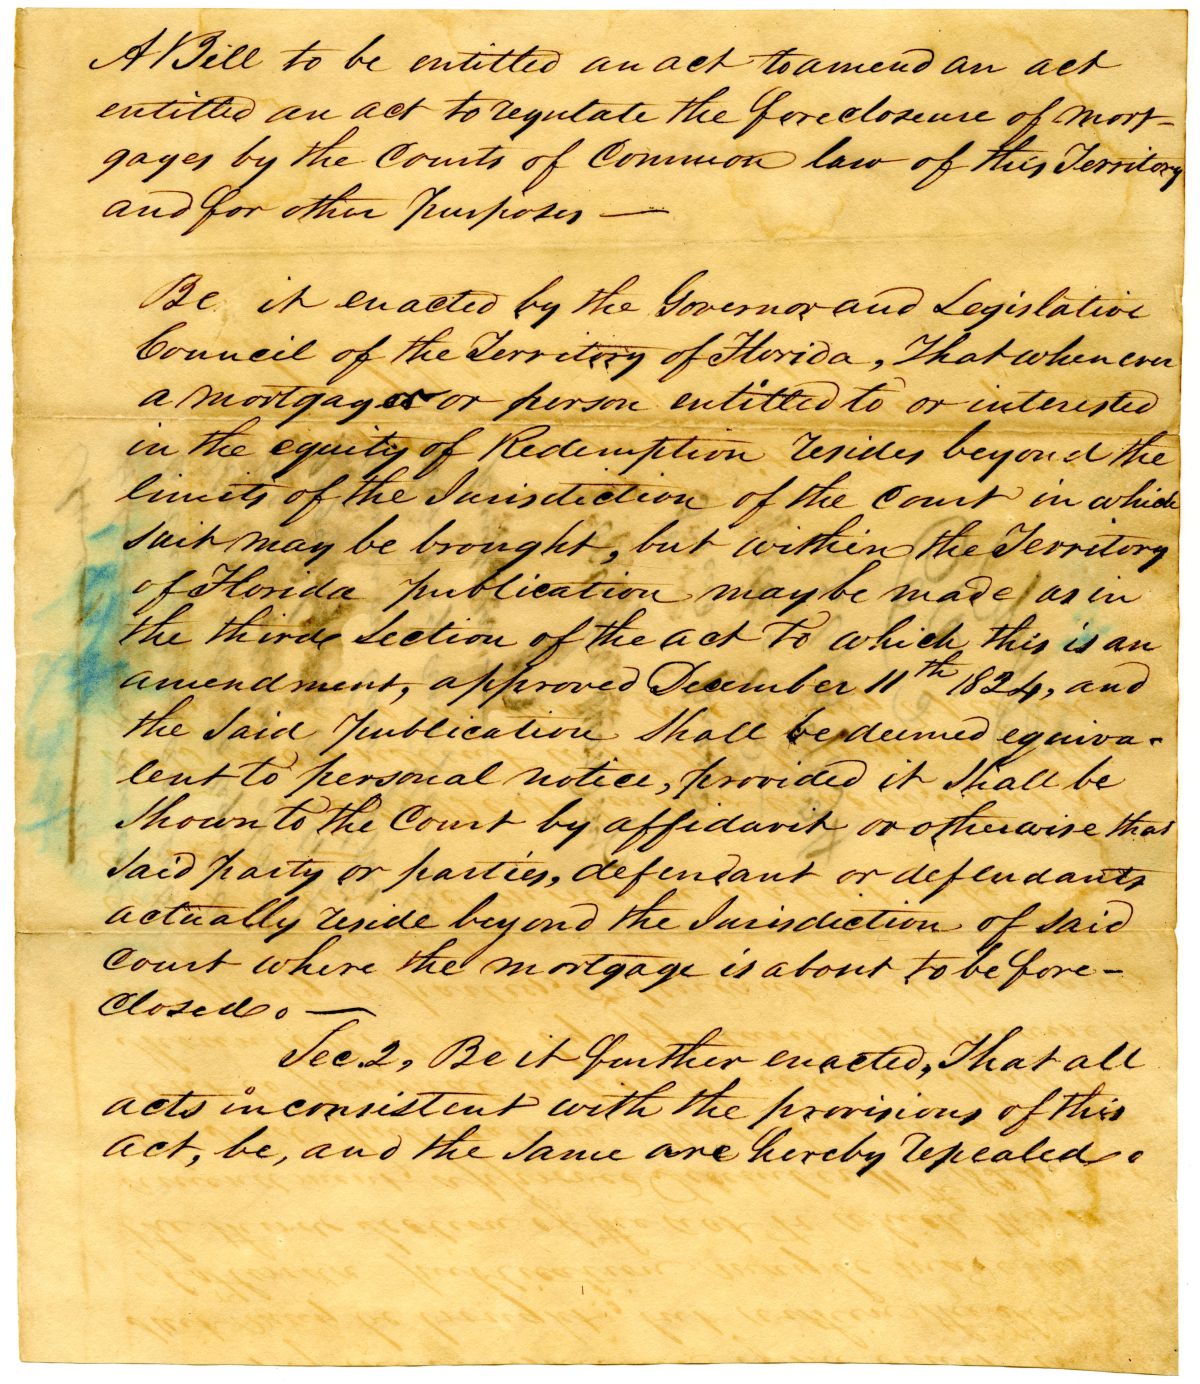 A Bill to be entitled an act to amend an act
entitled an act to regulate the foreclosure of mort-
gages by the Courts of Common law of this Territory
and for other purposes —
Be it enacted by the Governor and Legislative
Council of the Territory of Florida, That whenever
a mortgagor or person entitled to or interested
in the equity of Redemption resides beyond the
limits of the Jurisdiction of the Court in which
suit may be brought, but within the Territory
of Florida publication may be made as in
the third Section of the act to which this is an
amendment, approved December 11th 1824, and
the said publication shall be deemed equiva-
lent to personal notice, provided it shall be
shown to the Court by affidavit or otherwise that
said party or parties, defendant or defendants
actually reside beyond the Jurisdiction of said
Court where the mortgage is about to be fore-
closed. —
Sec. 2, Be it further enacted, That all
acts inconsistent with the provisions of this
act, be, and the same are hereby repealed.